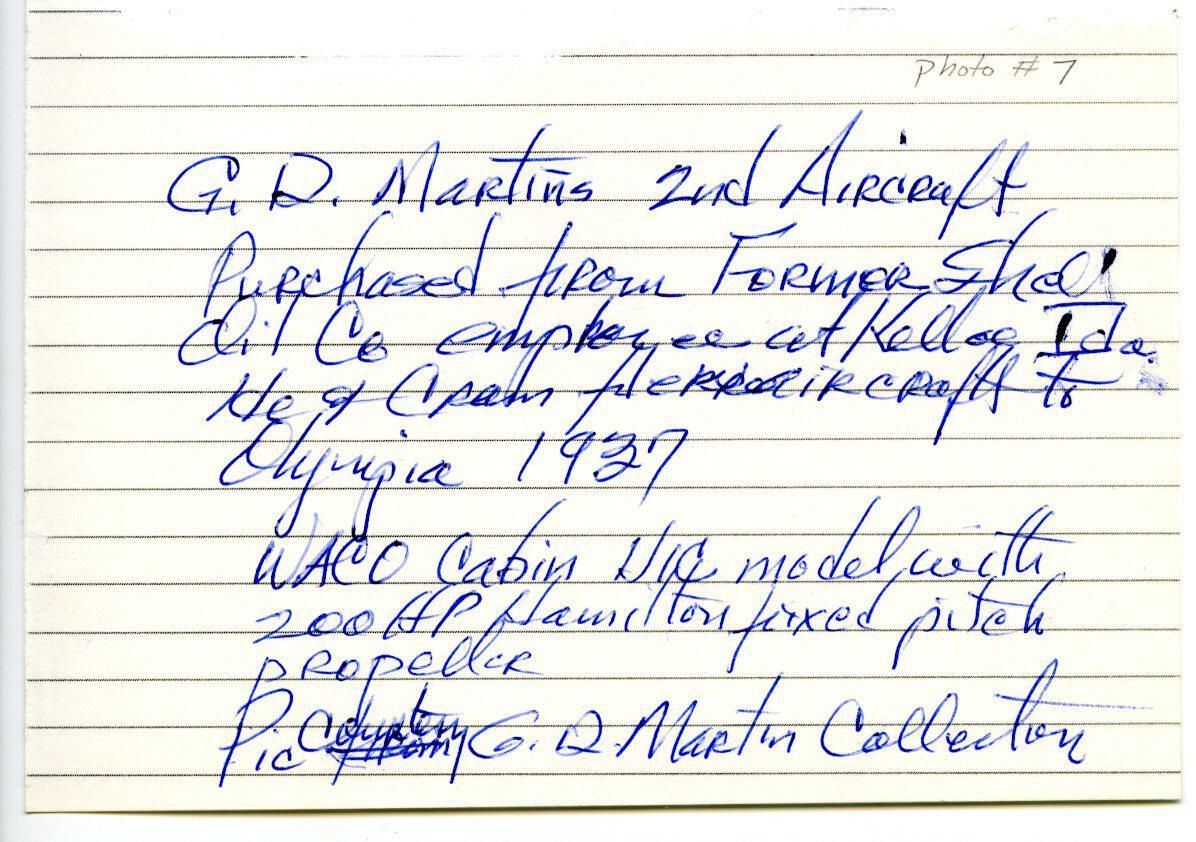 photo # 7
G. D. Martins 2nd Aircraft
Purchased from Former Shell
Oil Co employee at Kellog Ida.
He & Cram aircraft to
Olympia 1937
WACO Cabin model with
200 HP Hamilton fixed pitch
propeller
Pic G. D. Martin Collection